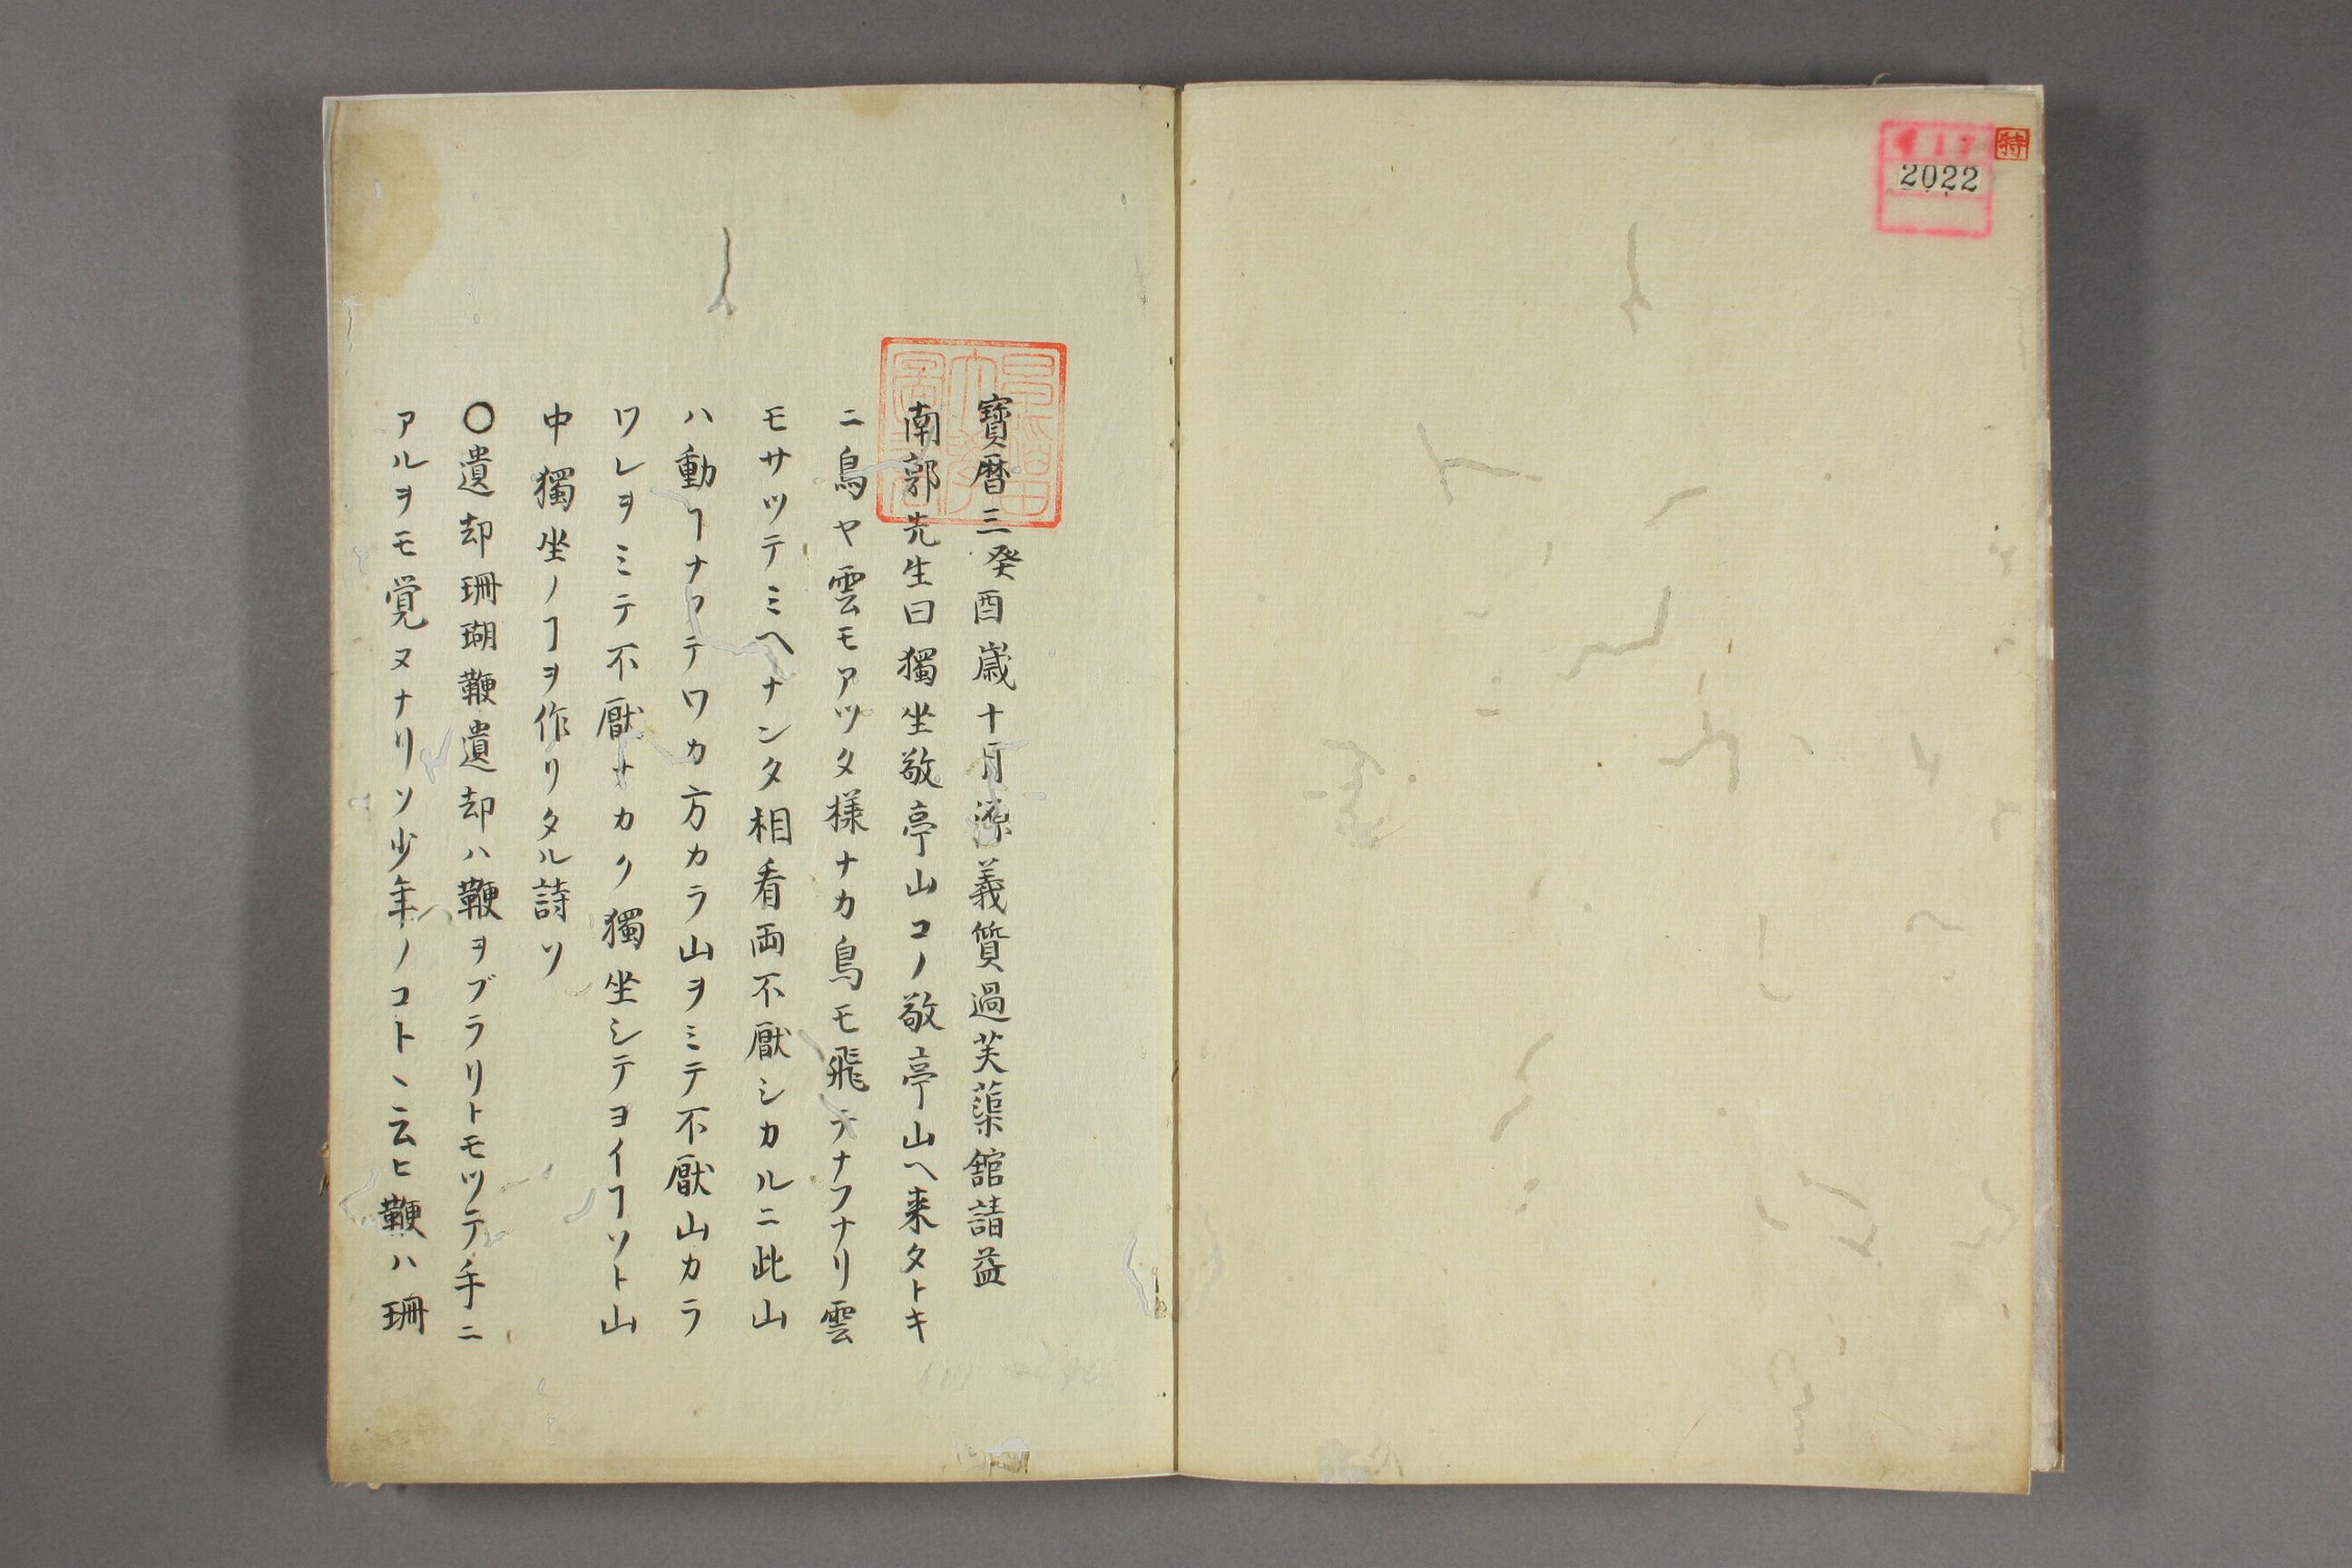 特
2022
寶暦三癸酉歳十月源義質過芙蕖舘請益
南郭先生曰獨坐敬亭山コノ敬亭山ヘ来タトキ
ニ鳥ヤ雲モアツタ様ナカ鳥モ飛テナフナリ雲
モサツテミヘナンタ相看両不厭シカルニ此山
ハ動ヿナクテワカ方カラ山ヲミテ不厭山カラ
ワレヲミテ不厭ナカク獨坐シテヨイヿソト山
中獨坐ノヿヲ作リタル詩ソ
〇遺却珊瑚鞭遺却ハ鞭ヲブラリトモツテ手ニ
アルヲモ覚ヌナリソ少年ノコトヽ云ヒ鞭ハ珊